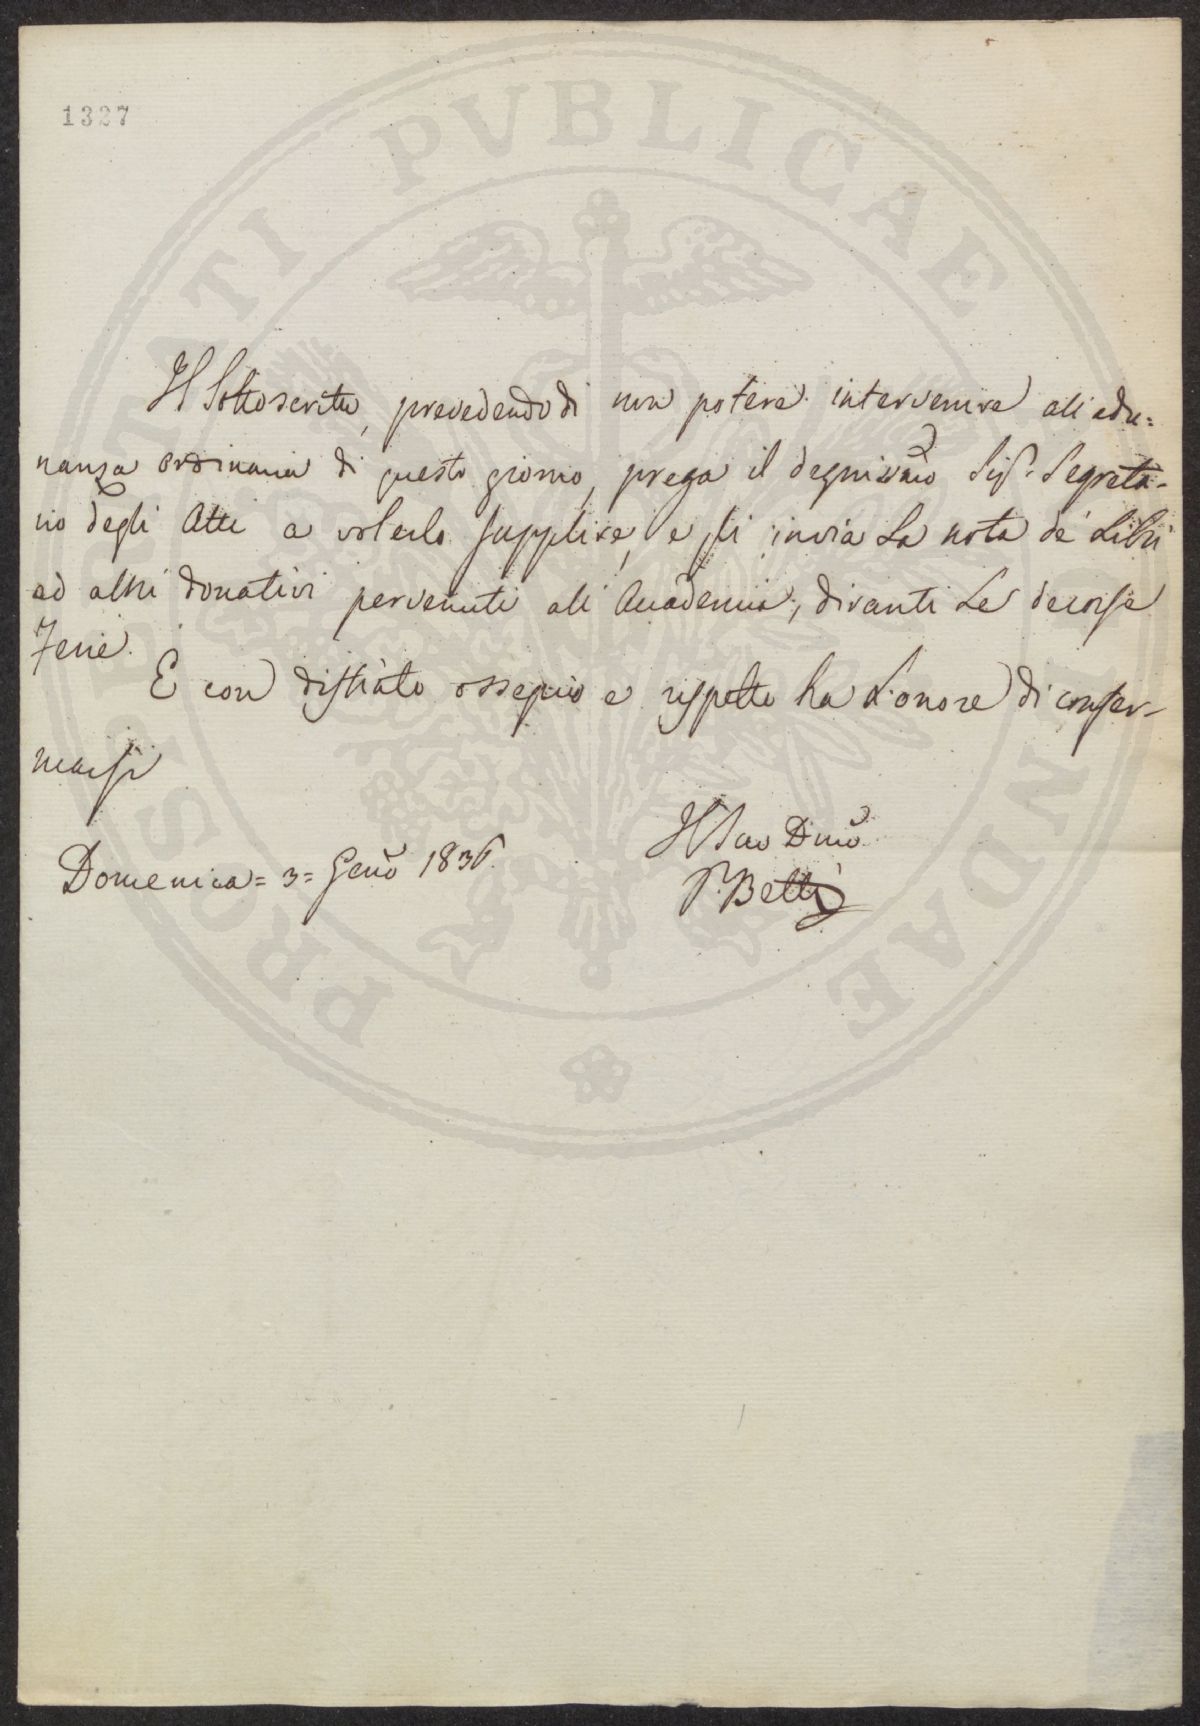 1327
PROSPERITATI PVBLICAE AVGENDAE
Il Sottoscritto, prevedendo di non potere intervenire all'adu=
nanza ordinaria di questo giorno, prega il degnissmo Sigr. Segreta-
rio degli Atti a volerlo supplire, e gli invia La nota de' Libri
ed altri donativi pervenuti all'Accademia, duranti Le decorse
Ferie.
E con distinto ossequio e rispetto ha L'onore di confer-
marsi
Il Suo Dmo
P. Betti
Domenica = 3 = Geno 1836.